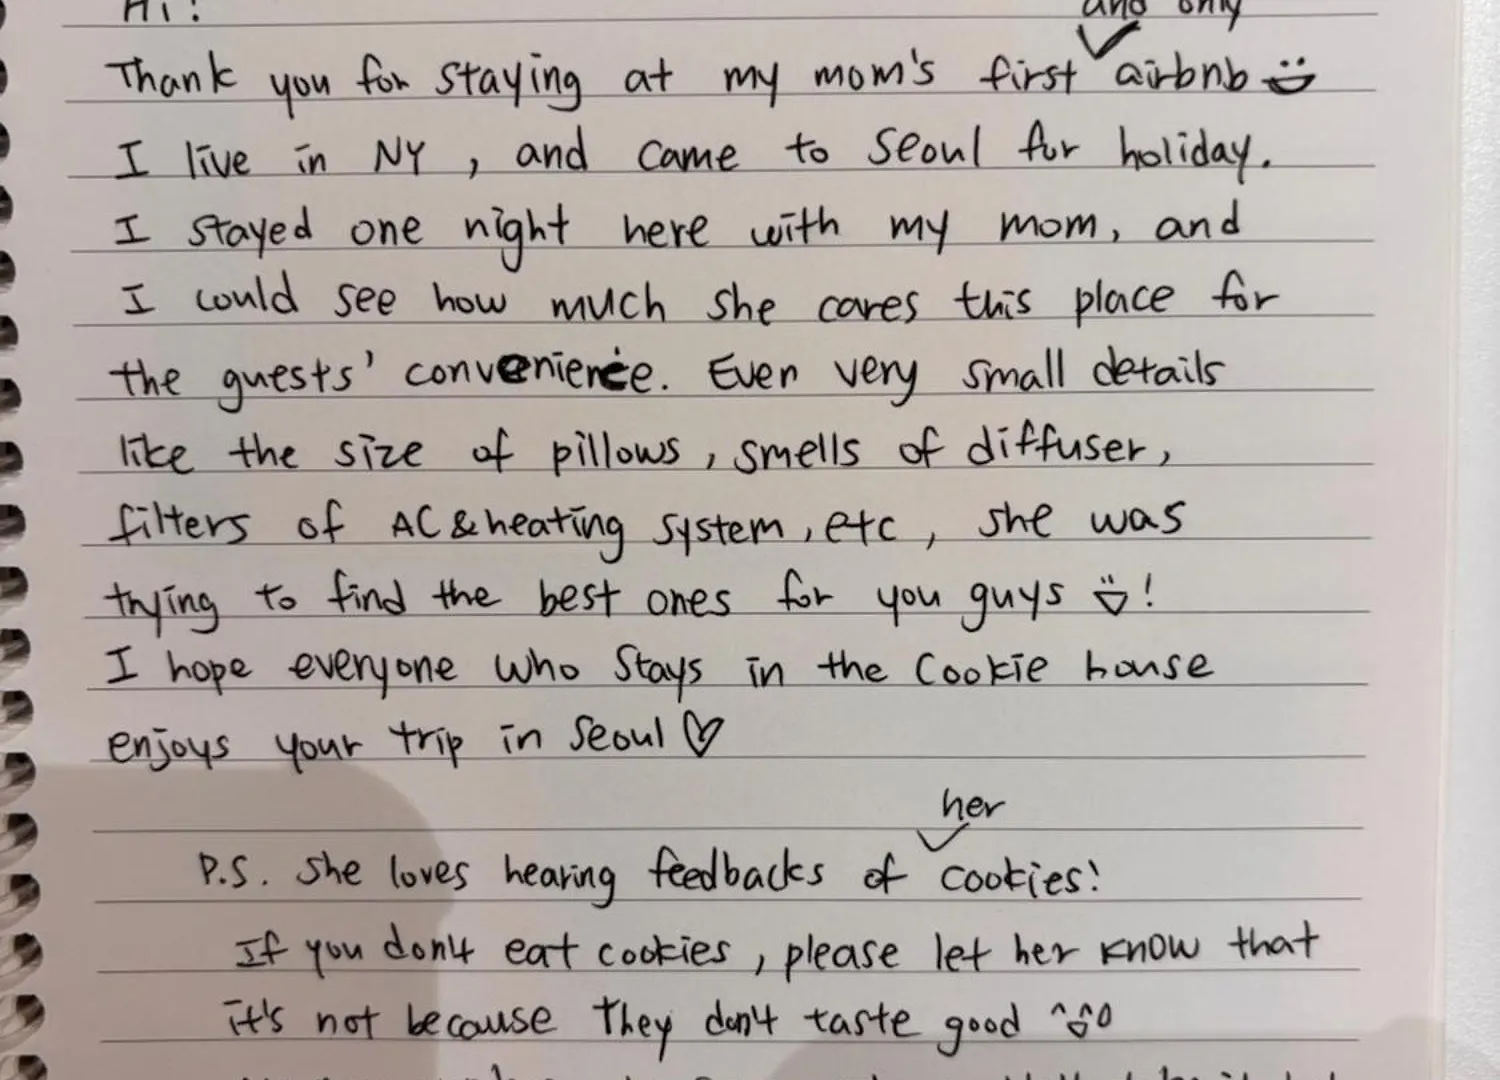 Hi!
Thank you for staying at my mom's first and only airbnb
I live in NY, and came to Seoul for holiday.
I stayed one night here with my mom, and
I could see how much she cares this place for
the guests' convenience. Even very small details
like the size of pillows, smells of diffuser,
filters of AC & heating system, etc, she was
trying to find the best ones for you guys !
I hope everyone who stays in the Cookie house
enjoys your trip in Seoul ♡
P.S. she loves hearing feedbacks of her cookies!
If you don't eat cookies, please let her know that
it's not because they don't taste good